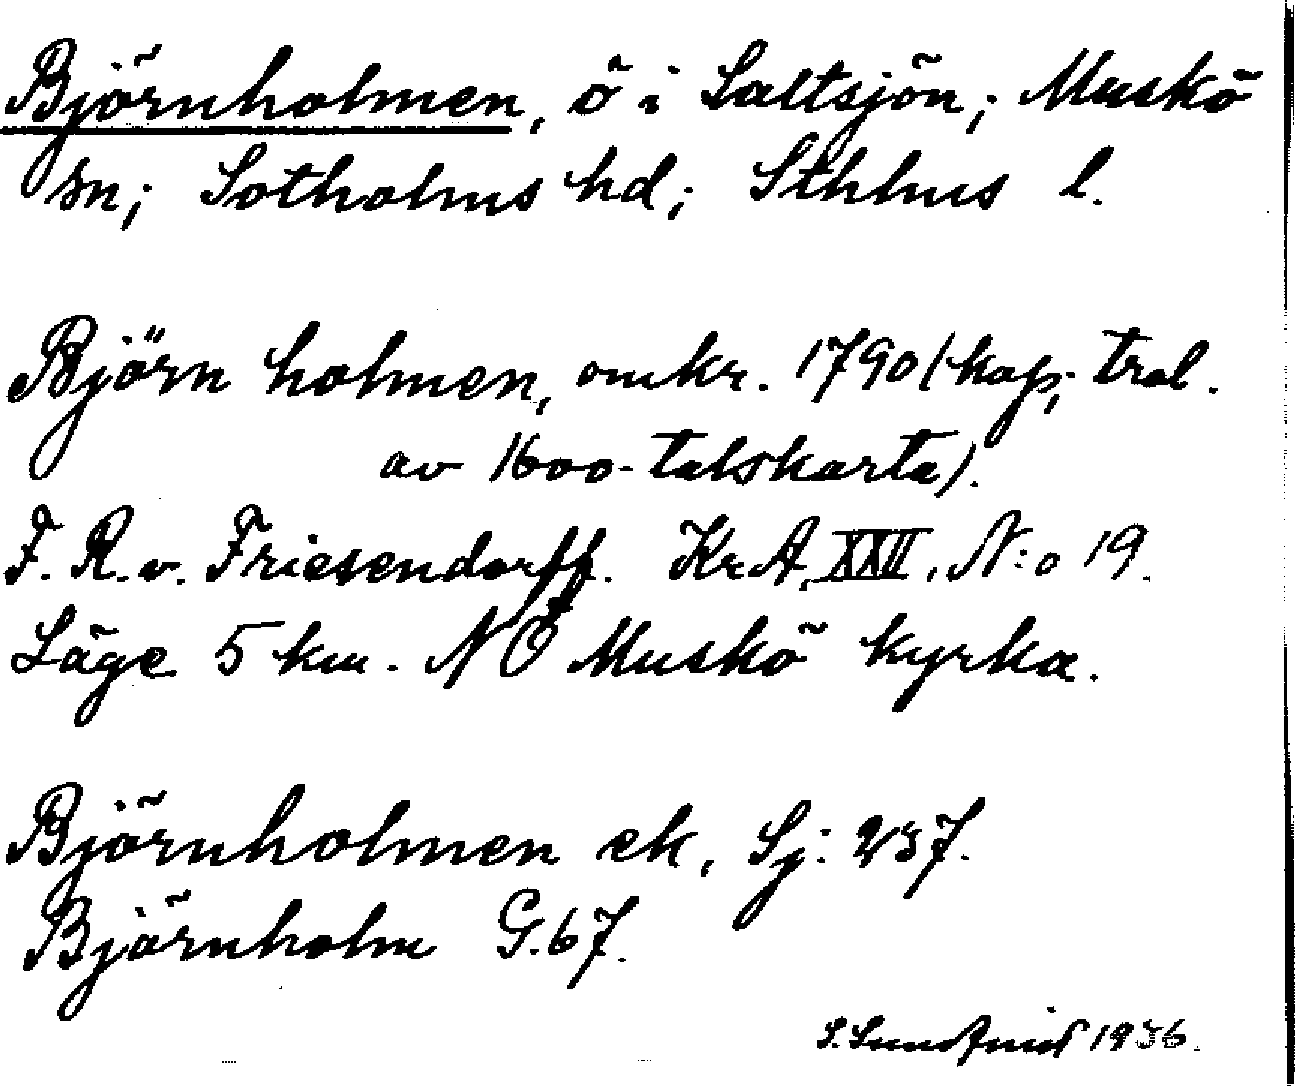 Björnholmen, ö i Saltsjön; Muskö
sn; Sotholms hd; Sthlms l.
Björn holmen, omkr. 1790 (kop; trol.
av 1600-talskarta).
F. R. v. Friesendorff. KrA, XXII, N:o 19.
Läge 5 km. NÖ Muskö kyrka.
Björnholmen ek, Sj: 237.
Björnholm G. 67.
S. Sundqvist 1936.